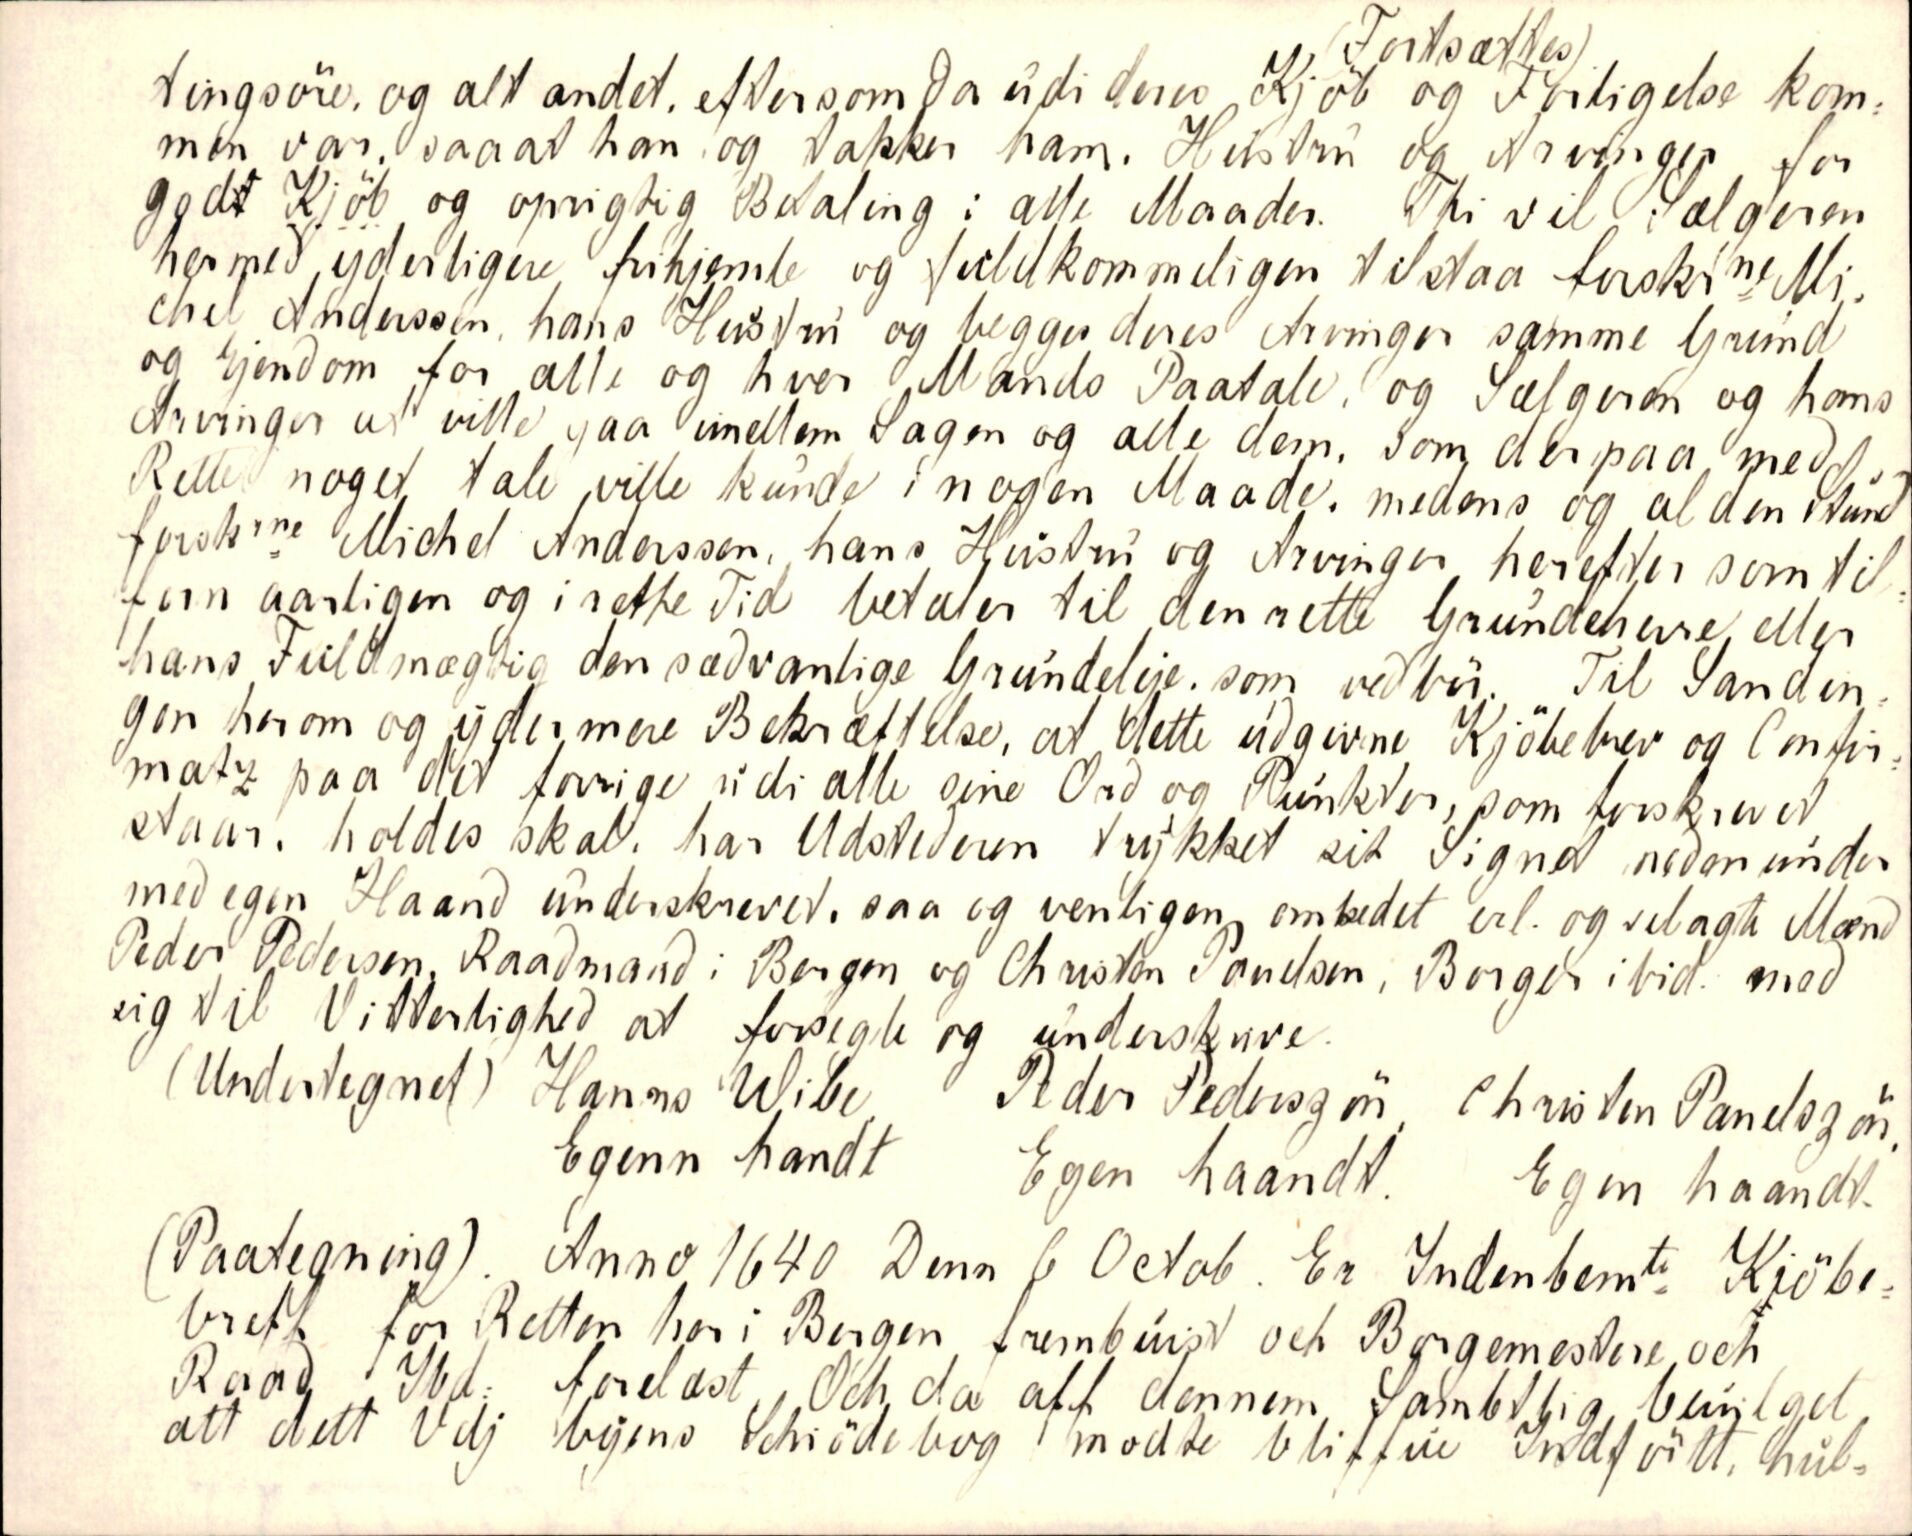 (Fortsættes)
tingsöre, og alt andet, eftersom da udi deres Kjöb og Forligelse kom=
men var, saaat han og takker ham, Hustru og Arvinger for
godt Kjöb og oprigtig Betaling i alle Maader. Thi vil Sælgeren
hermed yderligere frihjemle og fuldkommeligen tilstaa forskrne Mi-
chel Anderssen, hans Hustru og begges deres Arvinger samme Grund
og Ejendom for alle og hver Mands Paatale, og Sælgeren og hans
Arvinger at ville gaa imellem Sagen og alle dem, som derpaa med
Rette noget tale ville kunde i nogen Maade, medens og al den Stund
forskrne Michel Anderssen, hans Hustru og Arvinger herefter som til=
forn aarligen og i rette Tid betaler til den rette Grundeherre eller
hans Fuldmægtig den sædvanlige Grundeleje, som vedbör. Til Sandin=
gen herom og ydermere Bekræftelse, at dette udgivne Kjöbebrev og Confir=
matz paa det forrige udi alle sine Ord og Punkter, som forskrevet
staar, holdes skal, har Udstederen trykket sit Signet nedenunder
med egen Haand underskrevet, saa og venligen ombedet erl. og velagte Mænd
Peder Pedersen, Raadmand i Bergen og Christen Pouelsen, Borger ibid. med
sig til Vitterlighed at forsegle og underskrive.
(Undertegnet) Hanns Wibe Peder Pederszön, Christen Panelszön,
Egenn handt Egen haandt. Egen haandt.
(Paategning). Anno 1640 Denn 6 Octob. Er Indenbemte Kjöbe=
breff for Retten her i Bergen frembuist och Borgemestere och
Raad Ibd: forelæst, Och da aff dennem Sambtlig beuilget
att dett Vdj byens Schiödebog motte bliffue Indförtt, huil=